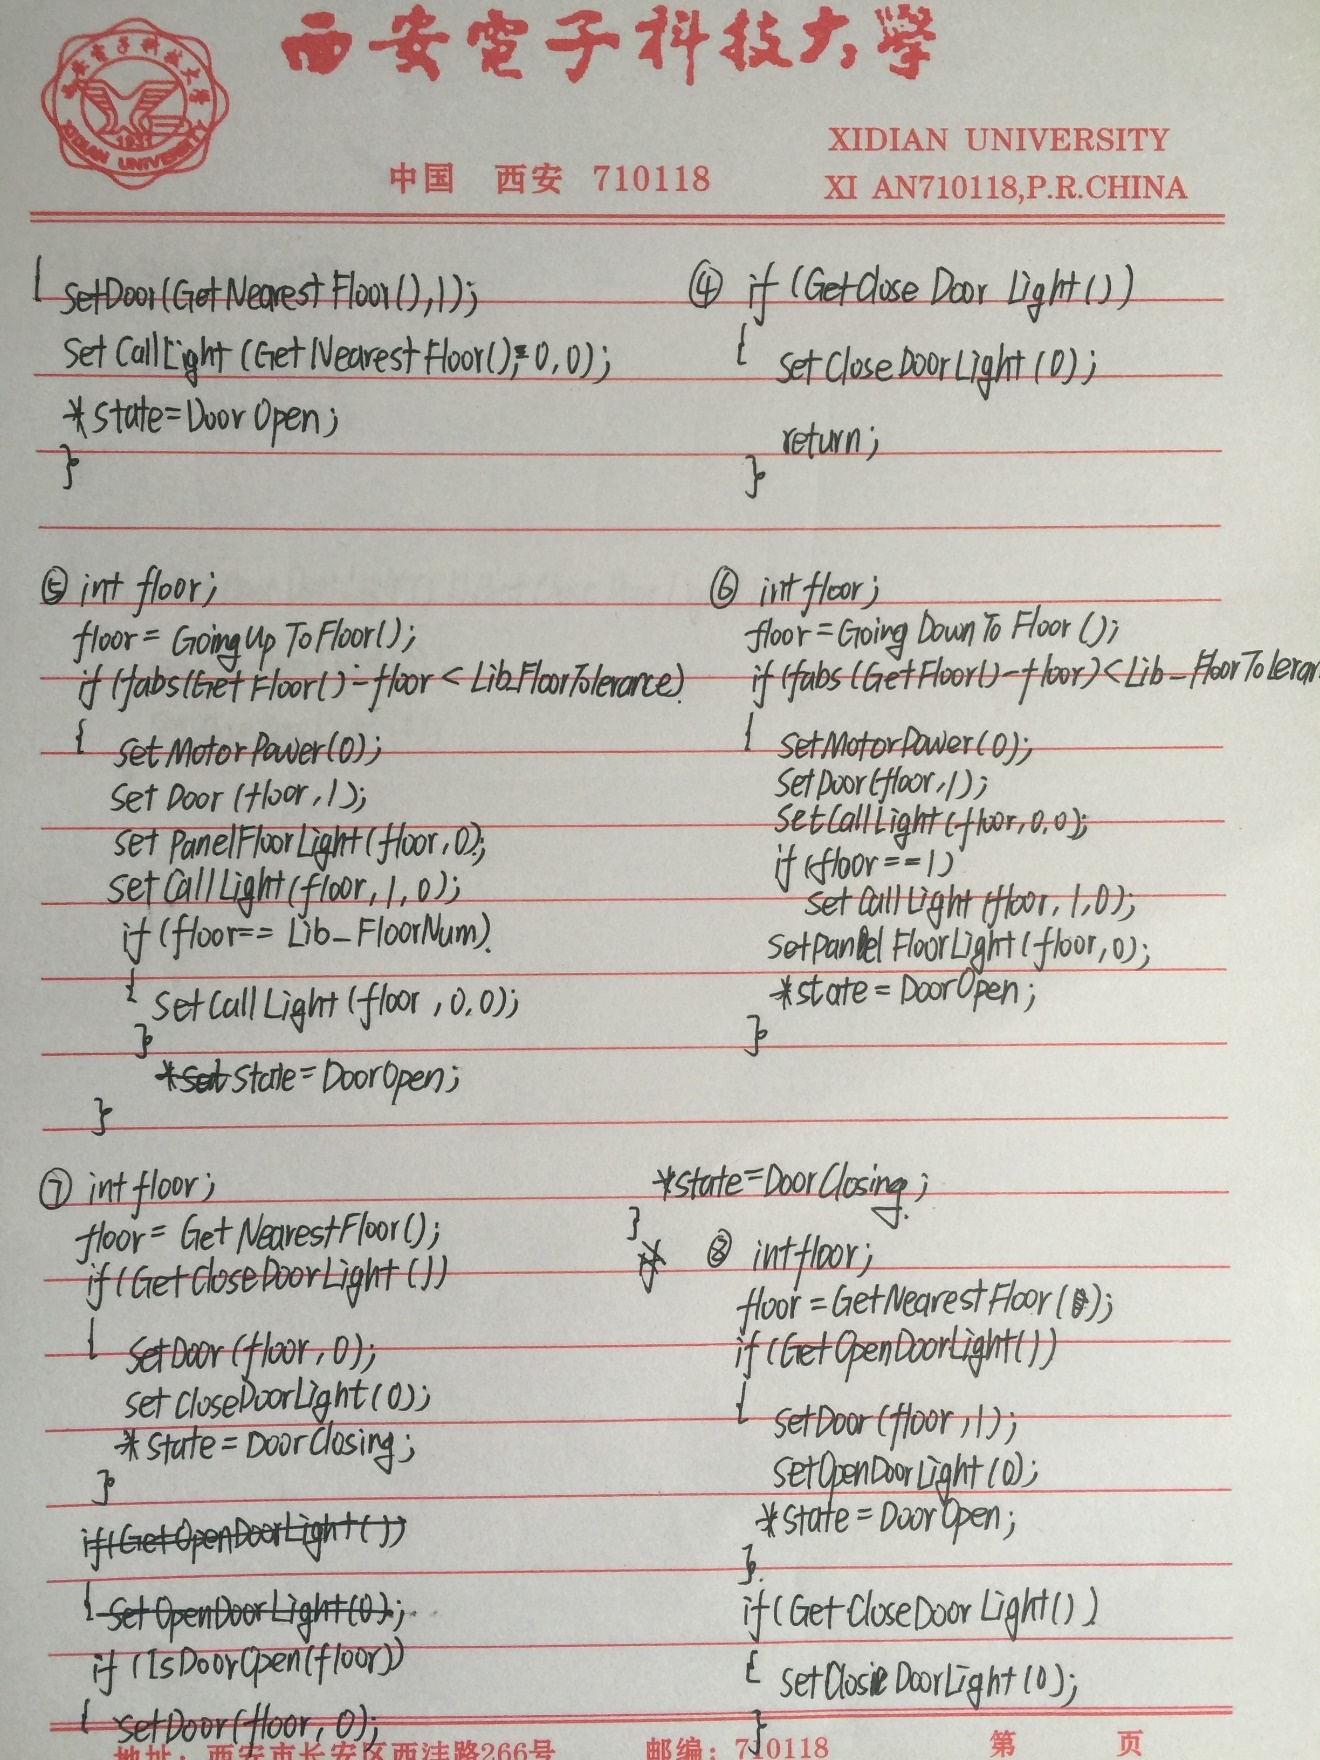 西安電子科技大學
西安電子科技大学
1931
XIDIAN UNIVERSITY
XIDIAN UNIVERSITY
中国 西安 710118
XI AN710118,P.R.CHINA
{ SetDoor(GetNearestFloor(),1);
SetCallLight(GetNearestFloor(),0,0);
*state=DoorOpen;
}
④ if (GetCloseDoorLight())
{ SetCloseDoorLight(0);
return;
}
⑤ int floor;
floor = GoingUpToFloor();
if (fabs(GetFloor()-floor < Lib_FloorTolerance)
{ SetMotorPower(0);
SetDoor(floor,1);
set PanelFloorLight(floor,0);
set CallLight(floor,1,0);
if (floor== Lib_FloorNum)
{ SetCallLight(floor,0,0);
}
*state=DoorOpen;
}
⑥ int floor;
floor=GoingDownToFloor();
if (fabs(GetFloor()-floor)<Lib_FloorToleran
{ SetMotorPower(0);
SetDoor(floor,1);
SetCallLight(floor,0,0);
if (floor==1)
set CallLight(floor,1,0);
SetPanelFloorLight(floor,0);
*state=DoorOpen;
}
⑦ int floor;
floor= GetNearestFloor();
if(GetCloseDoorLight())
{ SetDoor(floor,0);
set CloseDoorLight(0);
*state=DoorClosing;
}
if(GetOpenDoorLight())
{ SetOpenDoorLight(0);
if (IsDoorOpen(floor))
{ SetDoor(floor,0);
*state=DoorClosing;
}
⑧ int floor;
floor=GetNearestFloor();
if(GetOpenDoorLight())
{ SetDoor(floor,1);
SetOpenDoorLight(0);
*state=DoorOpen;
}
if(GetCloseDoorLight())
{ SetCloseDoorLight(0);
}
地址：西安市长安区西沣路266号 邮编：710118 第 页